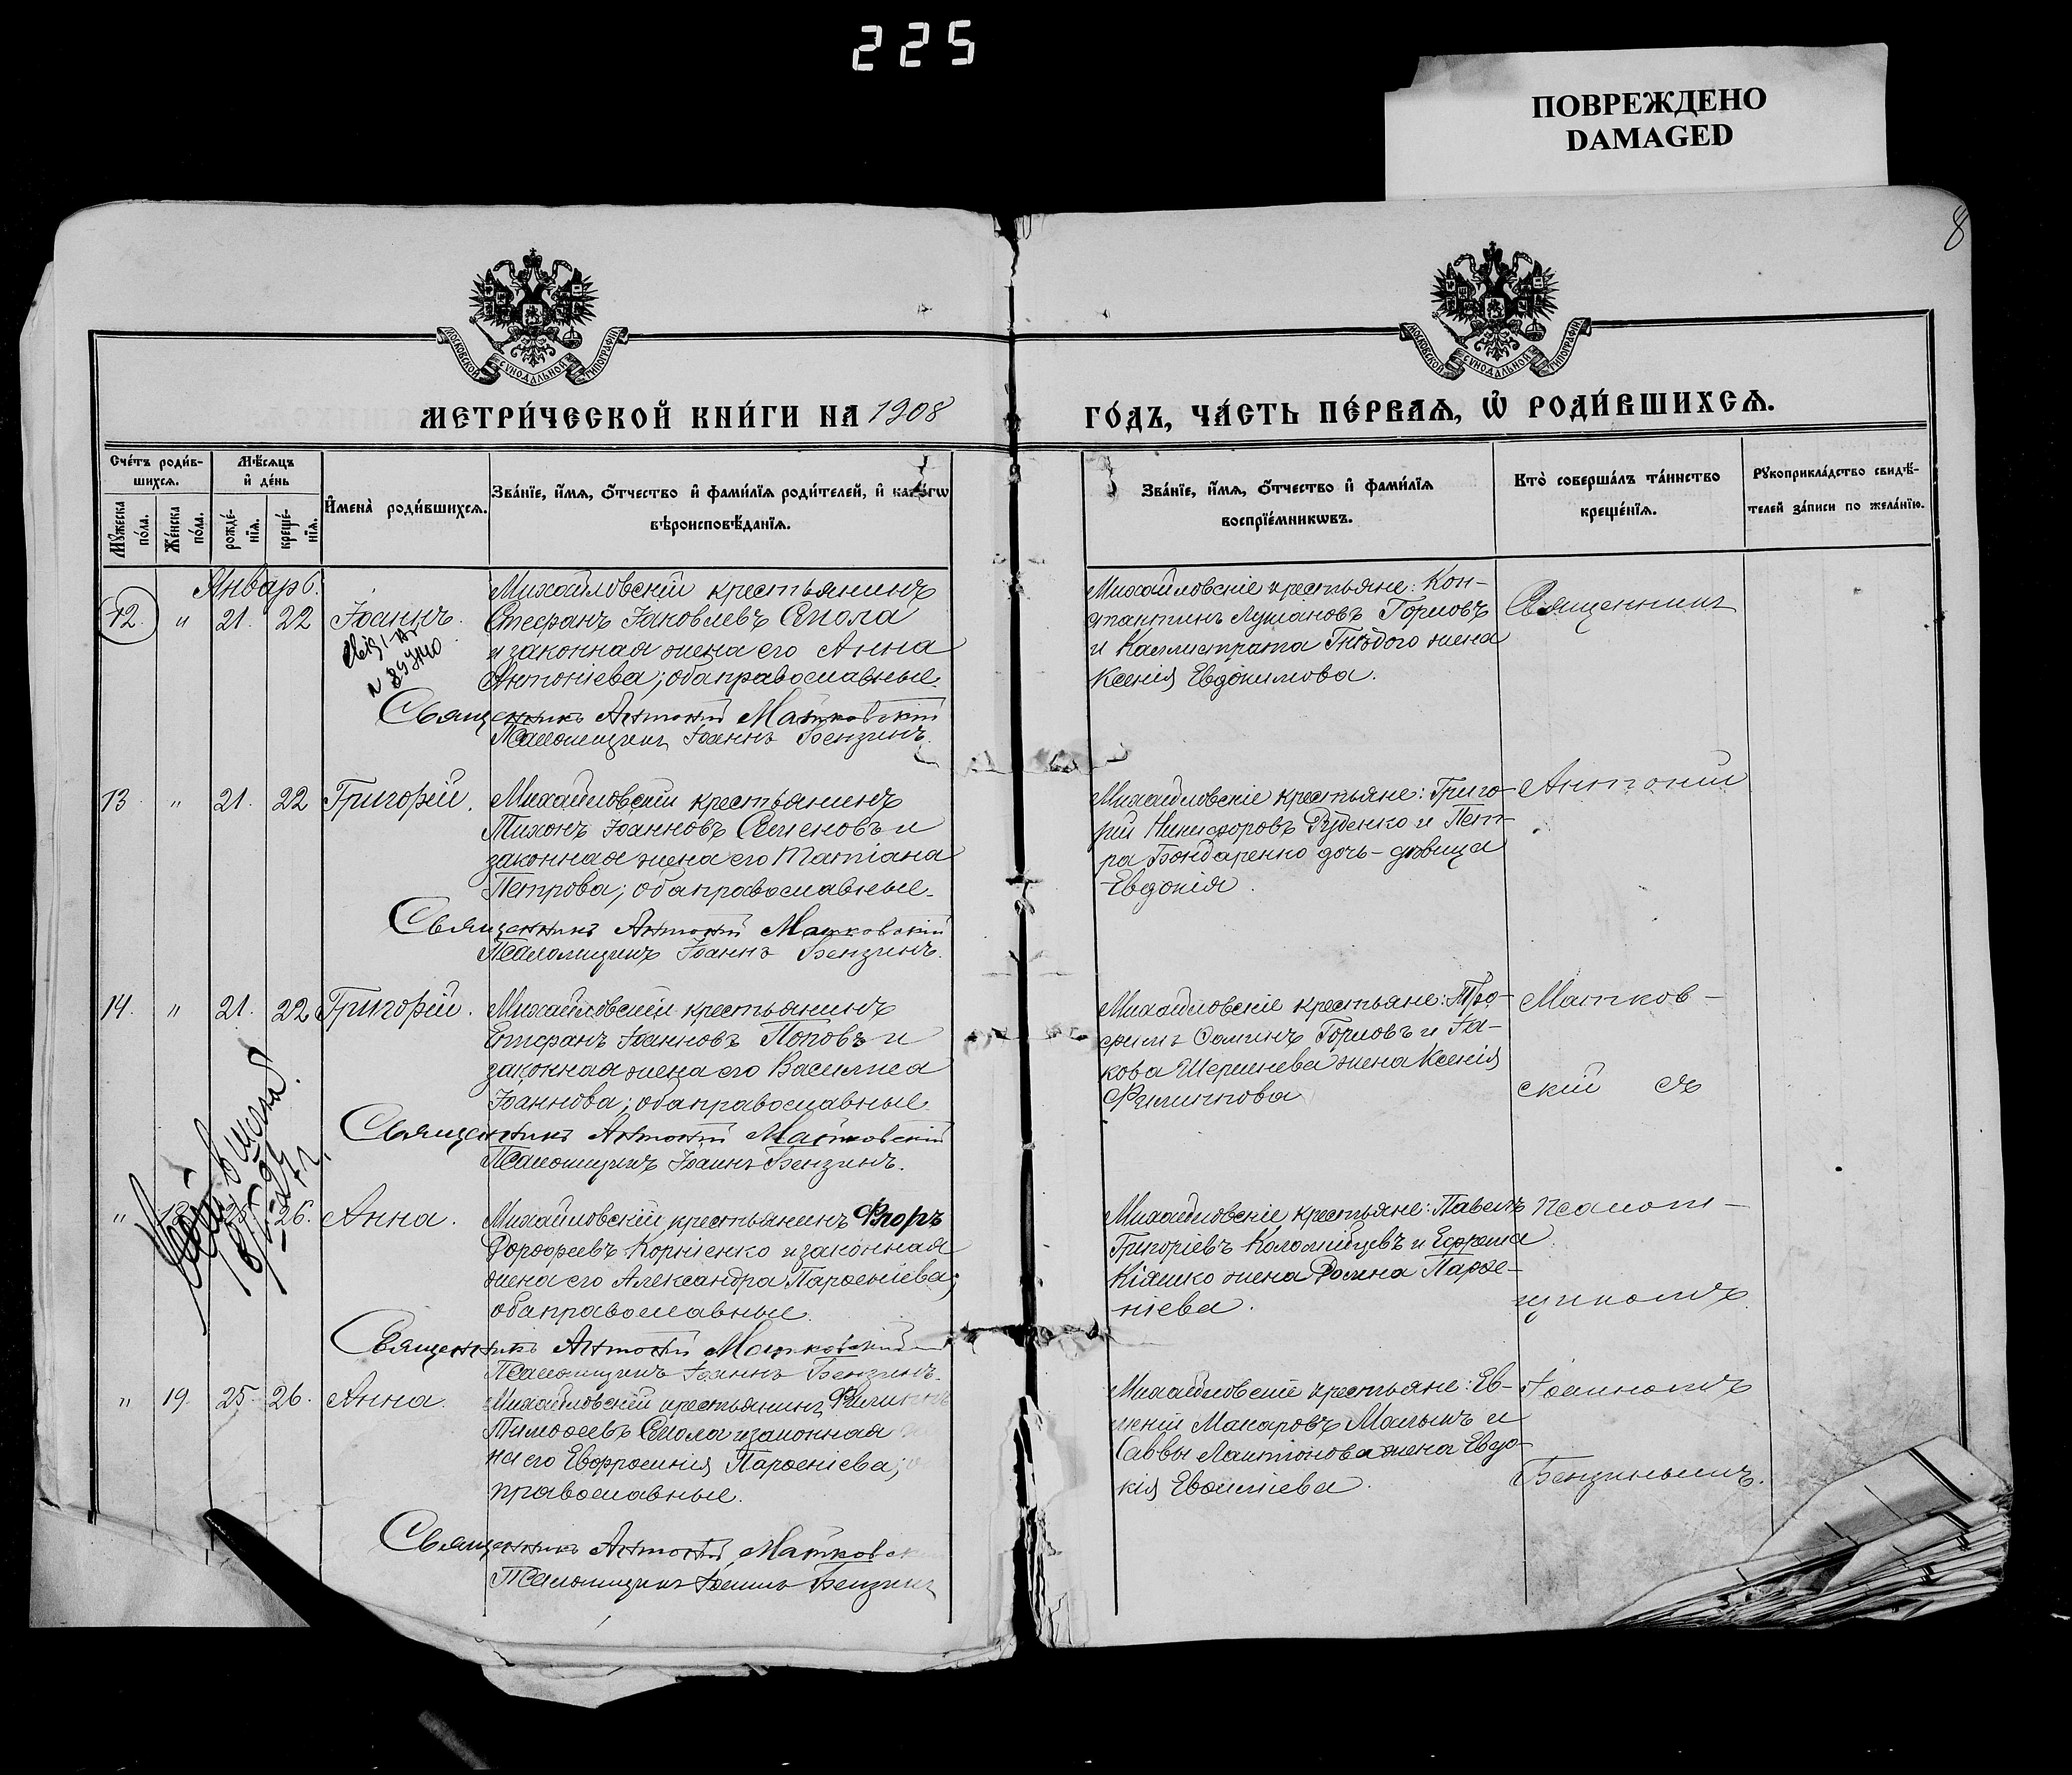 225
ПОВРЕЖДЕНО
DAMAGED
8
МОСКОВСКОЙ СѴНОДАЛЬНОЙ ТИПОГРАФІИ
МОСКОВСКОЙ СѴНОДАЛЬНОЙ ТИПОГРАФІИ
МЕТРИ́ЧЕСКОЙ КНИ́ГИ НА 1908
ГО́ДЪ, ЧА́СТЬ ПЕ́РВАѦ, Ѡ҆ РОДИ́ВШИХСѦ.
Сче́тъ роди́в-
шихсѧ.
Мꙋ́жеска
по́ла.
Же́нска
по́ла.
Мѣ́сѧцъ
и҆ де́нь
рожде́-
нїѧ.
креще́-
нїѧ.
И҆мена̀ роди́вшихсѧ.
Зва́нїе, и҆́мѧ, ѻ҆́тчество и҆ фами́лїѧ роди́телей, и҆ како́гѡ
вѣроисповѣ́данїѧ.
Зва́нїе, и҆́мѧ, ѻ҆́тчество и҆ фами́лїѧ
воспрїе́мникѡвъ.
Кто̀ соверша́лъ та́инство
креще́нїѧ.
Рꙋкоприкла́дство свидѣ́-
телей за́писи по жела́нїю.
Январь.
12. " 21. 22 Іоаннъ.
Михайловскій крестьянинъ
Стефанъ Іаковлевъ
и законная жена его Анна
Антоніева; оба православные.
Священникъ Антоній Матковскій
Псаломщикъ Іоаннъ Бензинъ.
Михайловскіе крестьяне: Кон-
стантинъ Лукіановъ Горловъ
и Каллистрата Гнѣдого жена
Ксенія Евдокимова.
Священникъ
13 " 21. 22 Григорій.
Михайловскій крестьянинъ
Тихонъ Іоанновъ Семеновъ и
законная жена его Татіана
Петрова; оба православные.
Священникъ Антоній Матковскій
Псаломщикъ Іоаннъ Бензинъ.
Михайловскіе крестьяне: Григо-
рій Никифоровъ Руденко и Пет-
ра Бондаренко дочь-дѣвица
Евдокія.
Антоній
14. " 21. 22 Григорій.
Михайловскій крестьянинъ
Іоанновъ Поповъ и
законная жена его Василиса
Іоаннова; оба православные.
Священникъ Антоній Матковскій
Псаломщикъ Іоаннъ Бензинъ.
Михайловскіе крестьяне: Тро-
фимъ Ѳоминъ Горловъ и Іа-
кова жена Ксенія
Филиппова
Матков-
скій съ
" 26. Анна.
Михайловскій крестьянинъ
Дороѳеевъ Корніенко и законная
жена его Александра Парѳеніева;
оба православные.
Священникъ Антоній Матковскій
Псаломщикъ Іоаннъ Бензинъ.
Михайловскіе крестьяне: Павелъ
Григоріевъ Коломійцевъ и Ефрема
жена Парѳе-
ніева.
псалом-
щикомъ
" 19. 25. 26. Анна.
Михайловскій крестьянинъ Филиппъ
Тимоѳеевъ и законная
на его Евфросинія Парѳеніева;
православные.
Священникъ Антоній Матковск
Псаломщикъ Іоаннъ Бензинъ
Михайловскіе крестьяне: Ев-
Макаровъ и
Саввы жена Евдо-
кія
Іоанномъ
Бензинымъ.